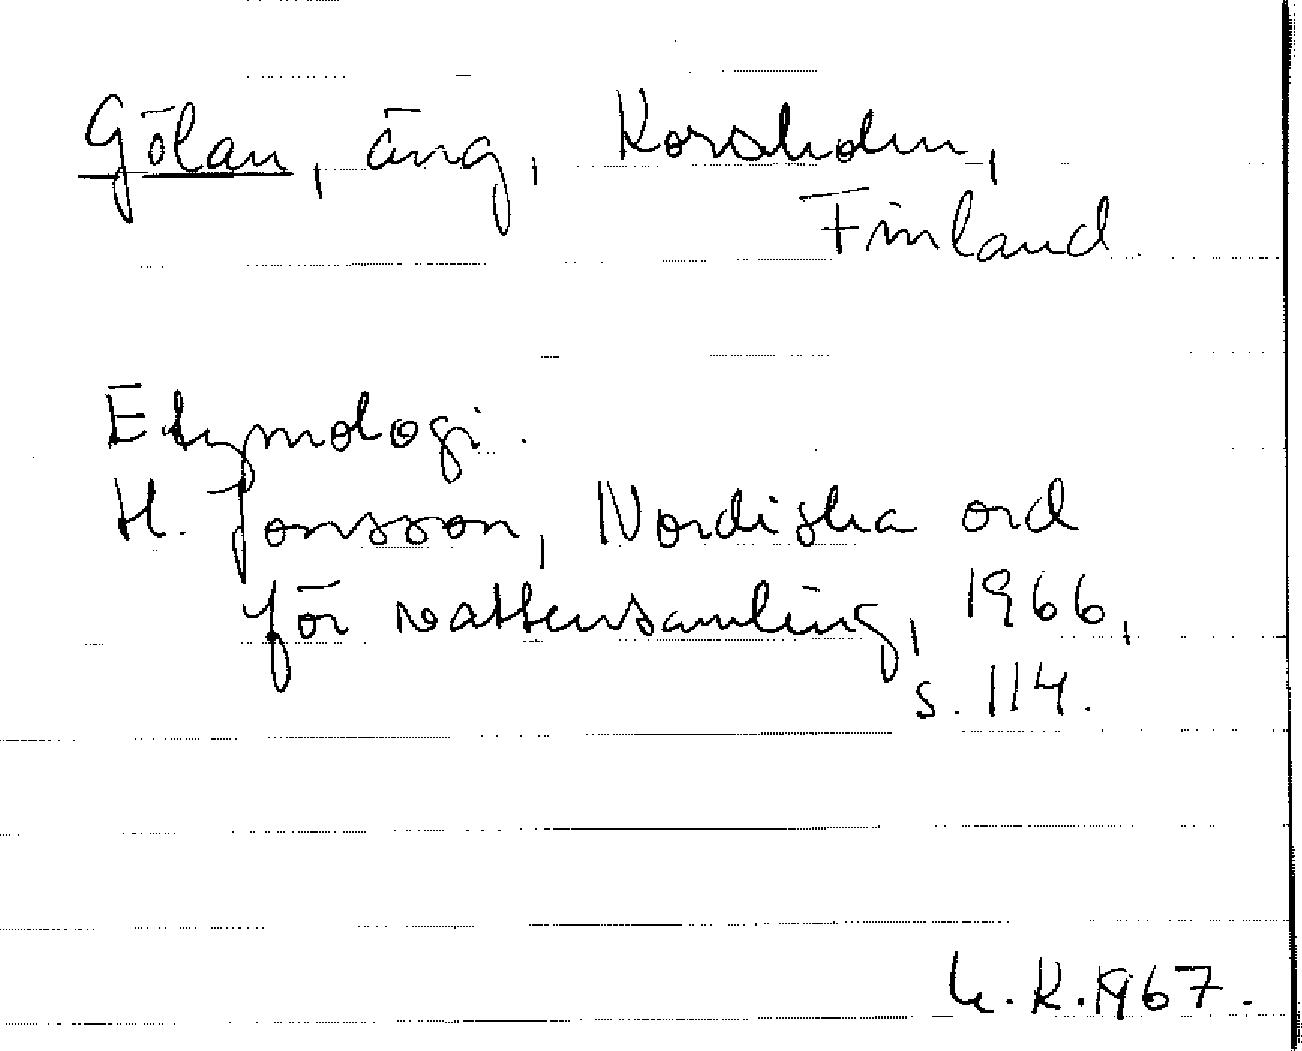 Gölan, äng, Korsholm,
Finland.
Etymologi.
H. Jonsson, Nordiska ord
för vattensamling, 1966,
s. 114.
K. 1967.